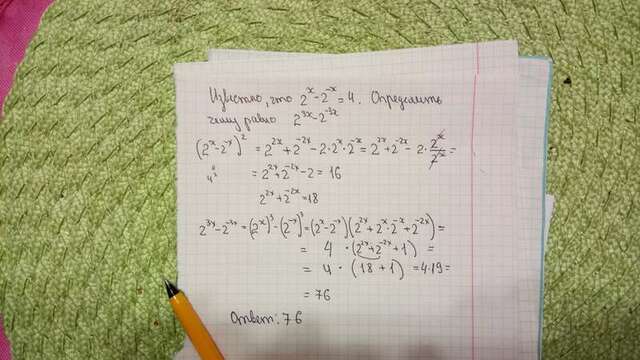 Известно, что 2^x-2^-x=4. Определить
чему равно 2^3x-2^-3x
(2^x-2^-x)^2 = 2^2x+2^-2x-2·2^x·2^-x = 2^2x+2^-2x-2·2^x/2^x =
4^2 = 2^2x+2^-2x-2=16
2^2x+2^-2x=18
2^3x-2^-3x=(2^x)^3-(2^-x)^3=(2^x-2^-x)(2^2x+2^x·2^-x+2^-2x)=
= 4·(2^2x+2^-2x+1) =
= 4·(18+1) =4·19=
= 76
Ответ: 76